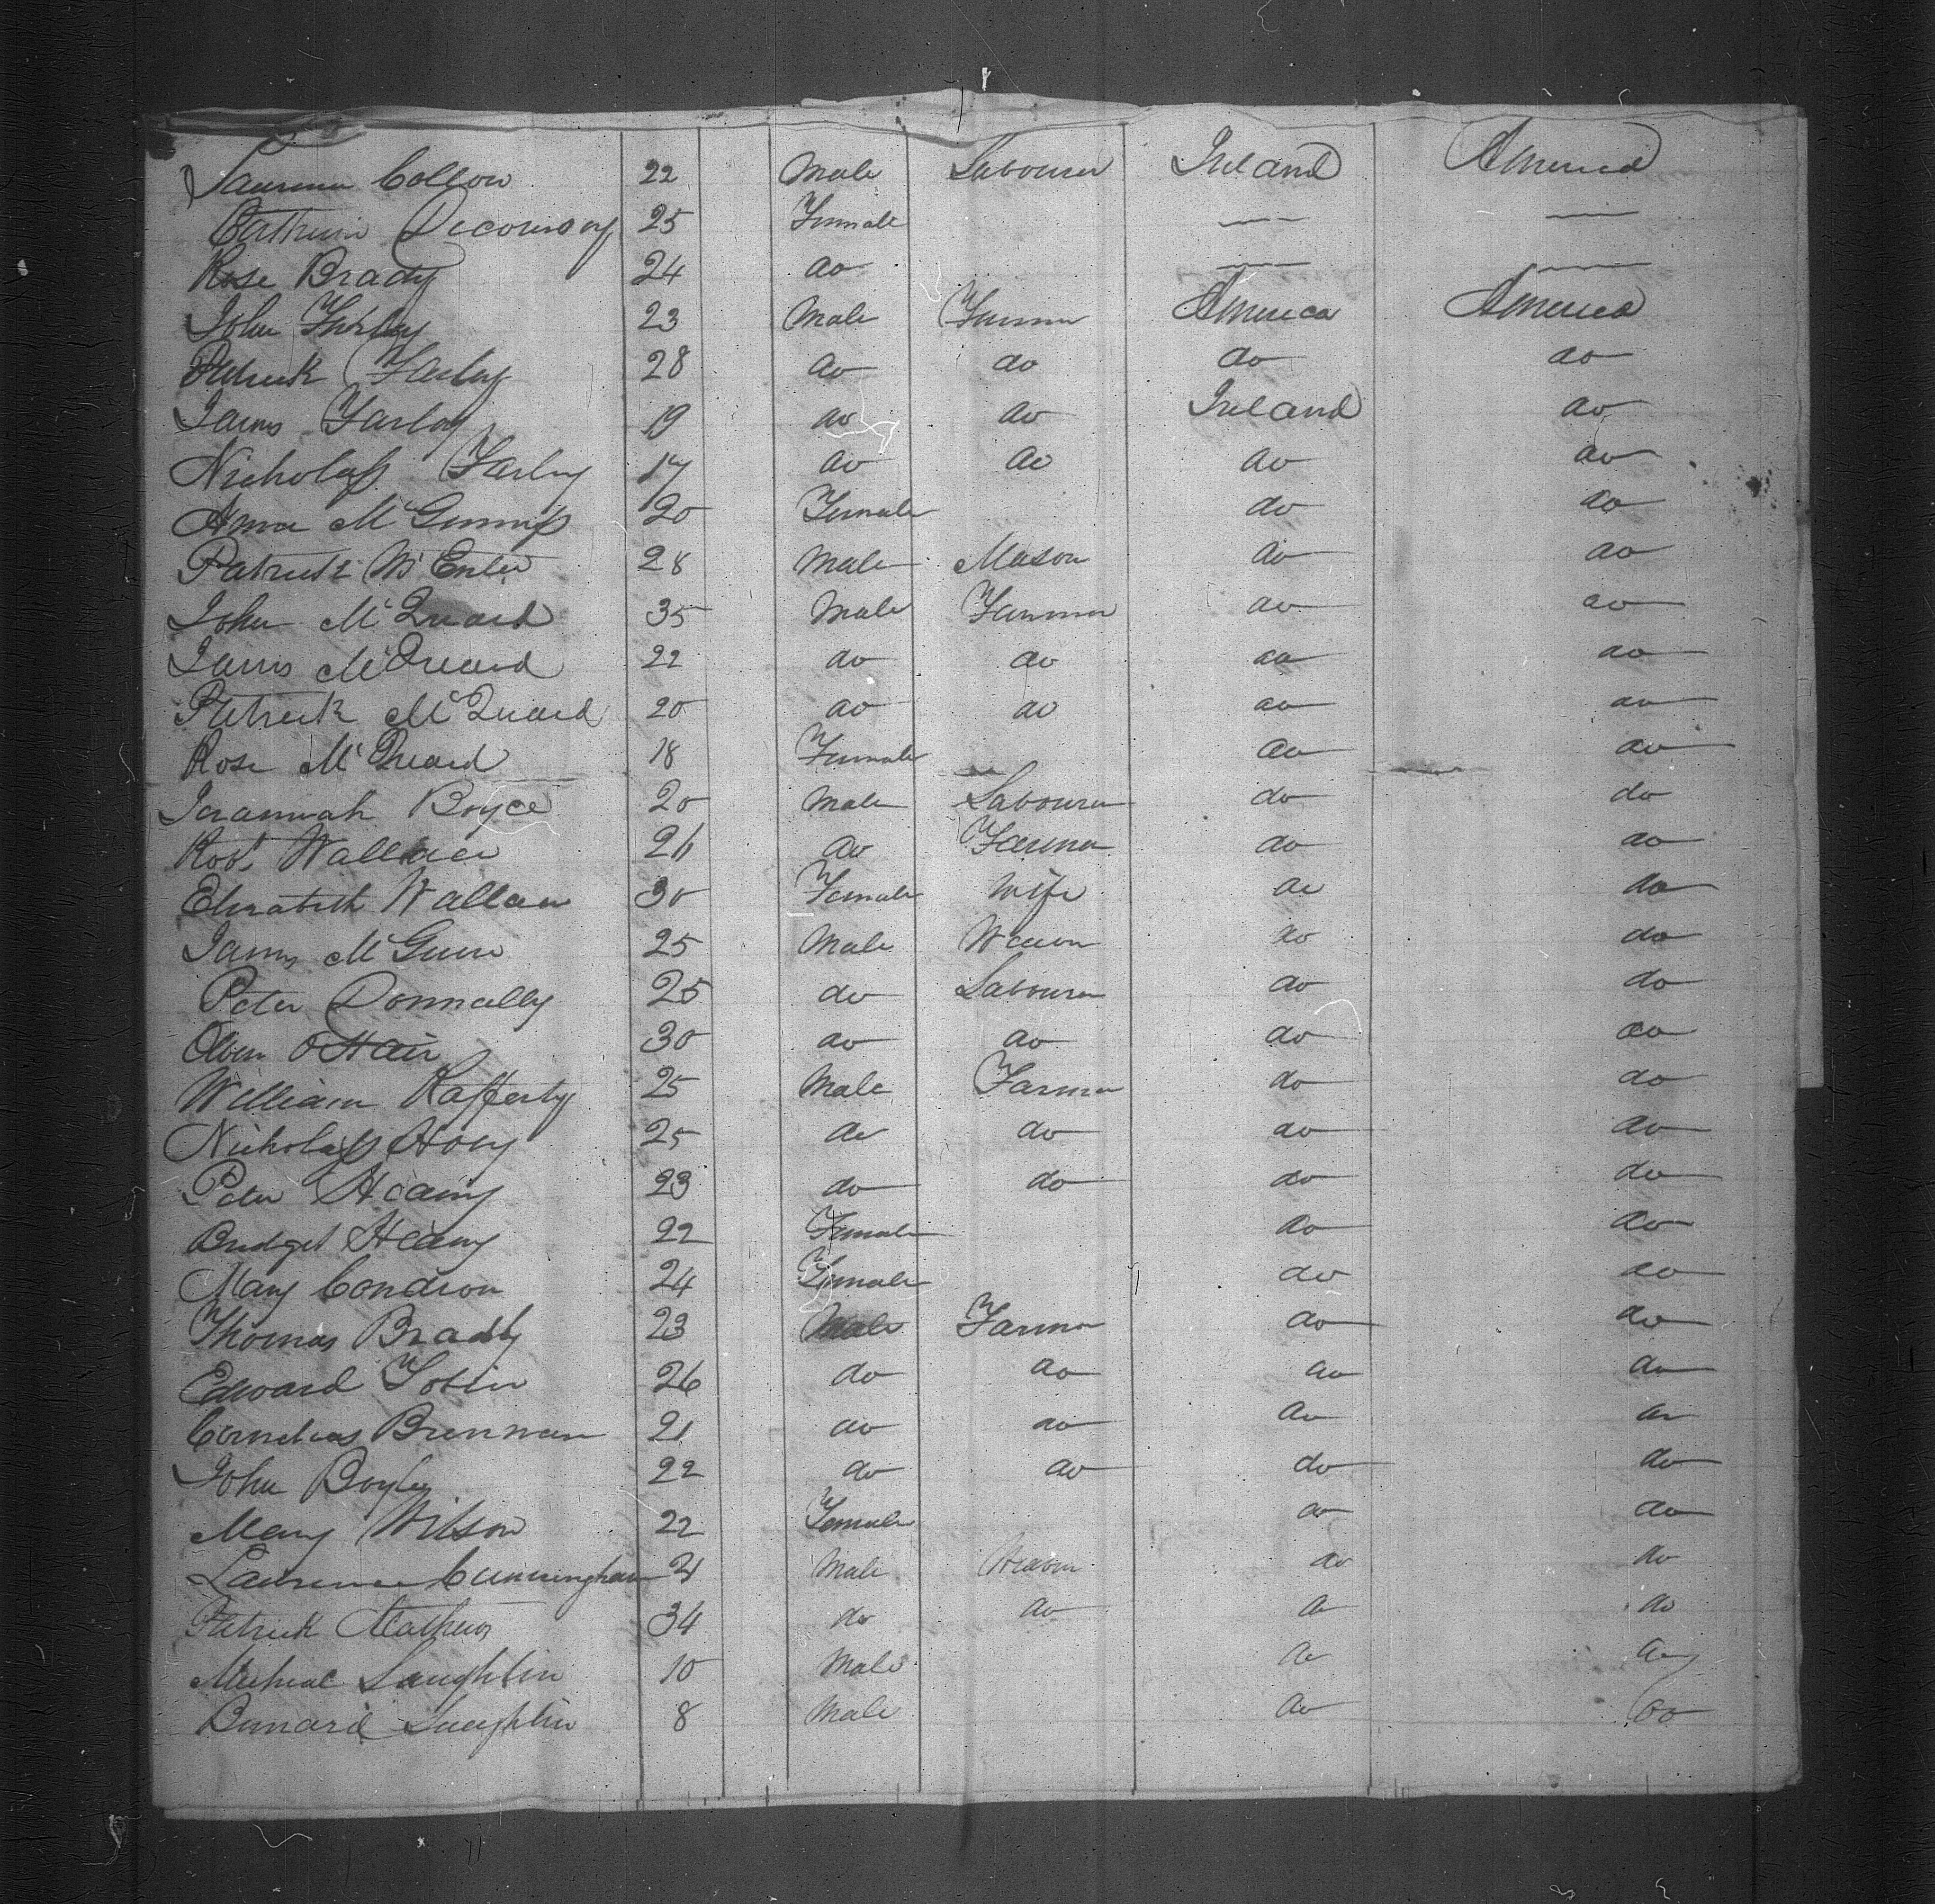 Laurence Collow 22 Male Labourer Ireland America
Cathrin Decoursay 25 Female — —
Rose Brady 24 do — —
John Farley 23 Male Farmer America America
Patrick Farley 28 do do do do
James Farley 19 do do Ireland do
Nicholass Farley 17 do do do do
Anna McGinniss 20 Female do do
Patrick McEnler 28 Male Mason do do
John McQuaid 35 Male Farmer do do
James McQuaid 22 do do do do
Patrick McQuaid 20 do do do do
Rose McQuaid 18 Female do do
Jeramiah Boyce 20 Male Labourer do do
Robt Wallace 26 do Farmer do do
Elizabeth Wallace 30 Female Wife do do
James McGuire 25 Male Weaver do do
Peter Donnally 25 do Labourer do do
Owen O'Hair 30 do do do do
William Rafferty 25 Male Farmer do do
Nicholass Hoey 25 do do do do
Peter Heainy 23 do do do do
Bridget Heainy 22 Female do do
Mary Condron 24 Female do do
Thomas Brady 23 Male Farmer do do
Edward Tobin 26 do do do do
Cornelius Brennan 21 do do do do
John Boyle 22 do do do do
Mary Wilson 22 Female do do
Laurence Cunningham 21 Male Weaver do do
Patrick Mathews 34 do do do do
Micheal Laughlin 10 Male do do
Bernard Laughlin 8 Male do do